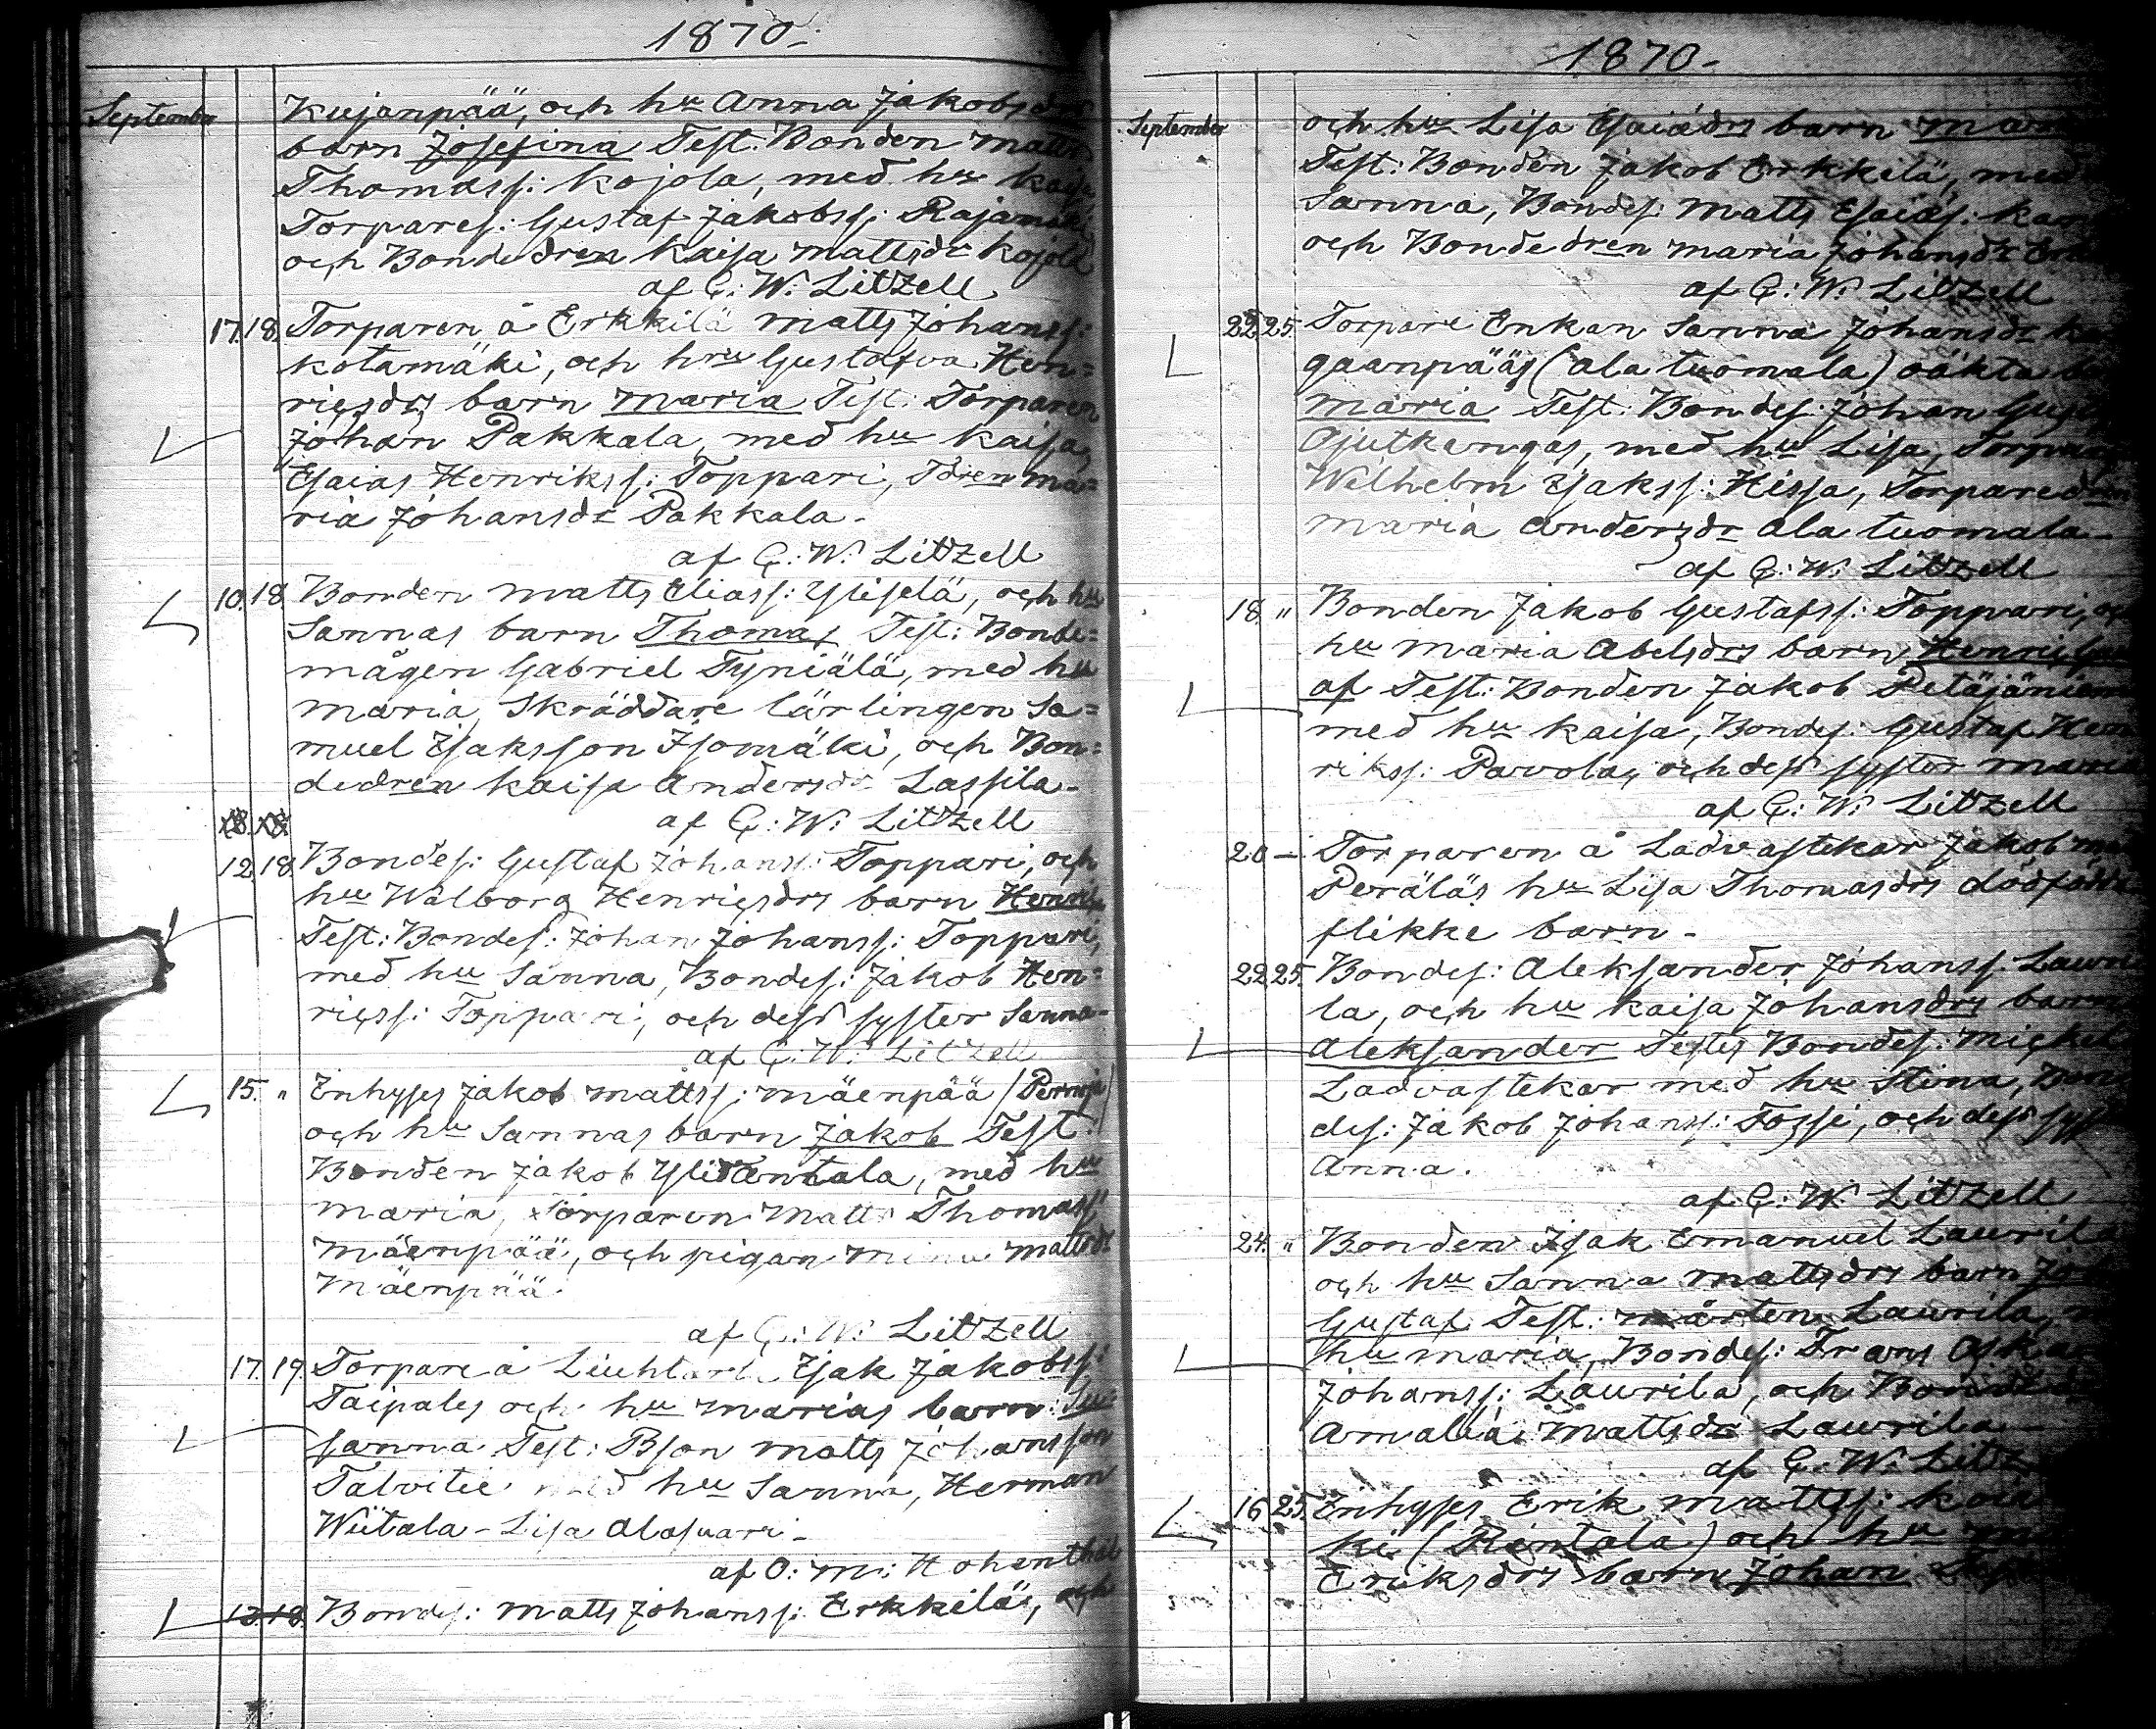 1870.
September Kujanpää, och hu Anna Jakobsdrs
barn Josefina Test: Bonden Matts
Thomass: Kojola, med hu Kaisa
Torpares: Gustaf Jakobss: Rajamäki
och Bondedren Kaisa Mattsdr Kojola
af C: W: Litzell
17. 18. Torparen å Erkkilä Matts Johanss:
Kotamäki, och hru Gustafva Hen=
ricsdrs barn Maria Test: Torparen
Johan Pakkala, med hu Kaisa,
Esaias Henrikss: Toppari, Tdren Ma=
ria Johansdr Pakkala.
af C: W: Litzell
10. 18 Bonden Matts Eliass: Yliselä, och hu
Sannas barn Thomas Test: Bonde=
mågen Gabriel Tyniälä, med hu
Maria, Skräddare lärlingen Sa=
muel Isaksson Isomäki, och Bon=
dedren Kaisa Andersdr Lassila.
af C: W: Litzell
12. 18. Bondes: Gustaf Johanss: Toppari, och
hu Walborg Henricsdrs barn
Test: Bondes: Johan Johanss: Toppari,
med hu Sanna, Bondes: Jakob Hen=
ricss: Toppari, och dess syster Sanna.
af C: W: Litzell
15. " Inhyses Jakob Mattss: Mäenpää
och hu Sannas barn Jakob Test:
Bonden Jakob Ylidantala, med hu
Maria, Torparen Matts Thomass:
Mäenpää, och pigan Mina Mattsdr
Mäenpää.
af C: W: Litzell
17. 19. Torpare å Isak Jakobss:
Taipales och hu Marias barn: Su=
sanna Test: Bson Matts Johansson
Talvitie med hu Sanna, Herman
Wiitala - Lisa Alasuari.
af O: M: Hohenthal
13. 18. Bondes: Matts Johanss: Erkkilä, och
1870.
September och hu Lisa Esaiædrs barn
Test: Bonden Jakob Erkkilä, med
Sanna, Bondes: Matts Esaias:
och Bondedren Maria Johansdr
af C: W: Litzell
22. 25. Torpare Enkan Sanna Johansdr
gaanpääs (Ala tuomala) oäkta
Maria Test: Bondes: Johan
Ojutkangas, med hu Lisa,
Wilhelm Isakss: Hissa, Torparedren
Maria Andersdr Ala tuomala.
af C: W: Litzell
18. " Bonden Jakob Gustafss: Toppari, och
hu Maria Abelsdrs barn Henric Gust
af Test: Bonden Jakob Petäjäniemi
med hu Kaisa, Bondes: Gustaf Hen
rikss: Pavola, och dess syster Maria
af C: W: Litzell
20 - Torparen å Ladvastekar Jakob
Peräläs hu Lisa Thomasdrs dödfödda
flikke barn.
22. 25. Bondes: Aleksander Johanss: Lauri
la, och hu Kaisa Johansdrs barn
Aleksander Testes Bondes: Mickel
Ladvastekar med hu Stina, Bon
des: Jakob Johanss: Fossi, och dess syster
Anna.
af C: W: Litzell
24. " Bonden Isak Emanuel Laurila
och hu Sanna Mattsdrs barn
Gustaf Test: Mårten Laurila,
hu Maria, Bondes: Frans Oskar
Johanss: Laurila, och
Amalia Mattsdr Laurila
af C: W: Litzell
16 25. Inhyses Erik Mattss:
ki (Rintala) och hu
Eriksdrs barn Johan Test